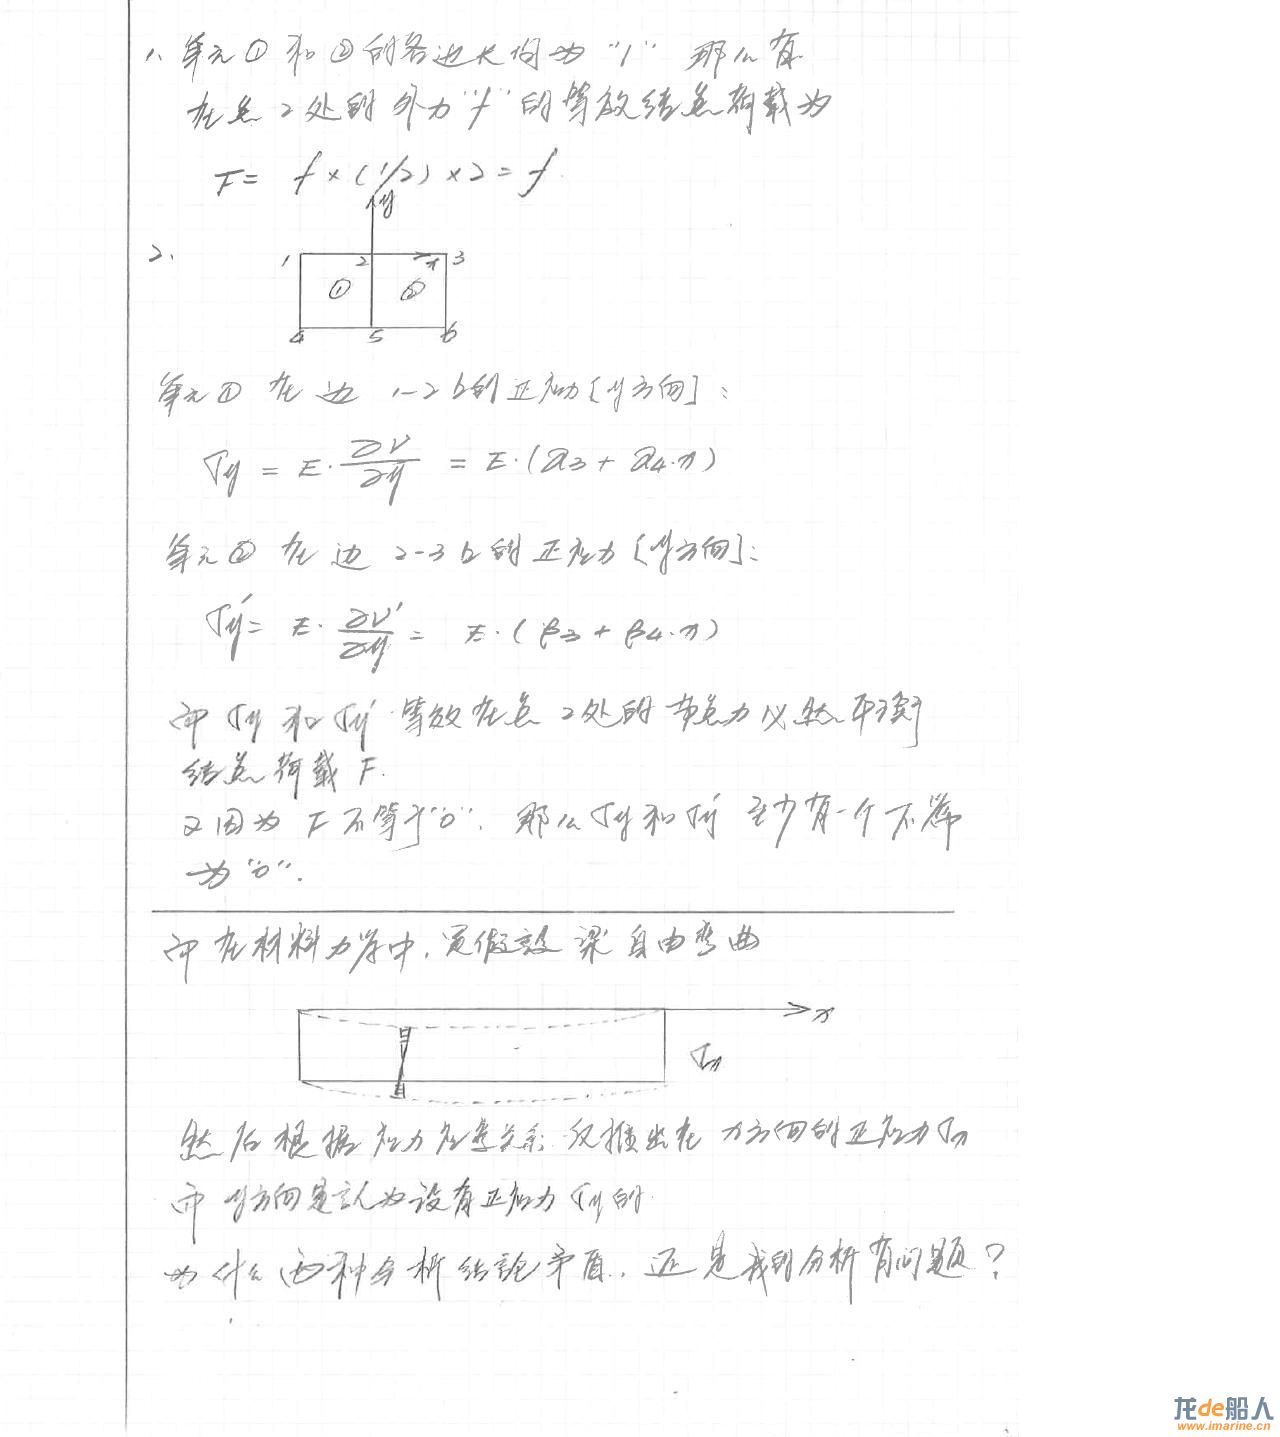 1、单元①和②的各边长均为“1” 那么有
在点2处的外力“f”的等效结点荷载为
F= f×(1/2)×2=f.
y
2、
1 2 x 3
① ②
4 5 6
单元①在边1-2上的正应力[y方向]:
σy = E·∂V/∂y = E·(a3+a4·x)
单元②在边2-3上的正应力[y方向]:
σy′= E·∂V′/∂y = E·(β3+β4·x)
而σy和σy′等效在点2处的节点力必然平衡
结点荷载F.
又因为F不等于“0”. 那么σy和σy′至少有一个不常
为“0”.
而在材料力学中,是假设梁自由弯曲
x
σx
然后根据应力应变关系仅推出在x方向的正应力σx
而y方向是认为没有正应力σy的.
为什么两种分析结论矛盾,还是我的分析有问题?
龙de船人
www.imarine.cn